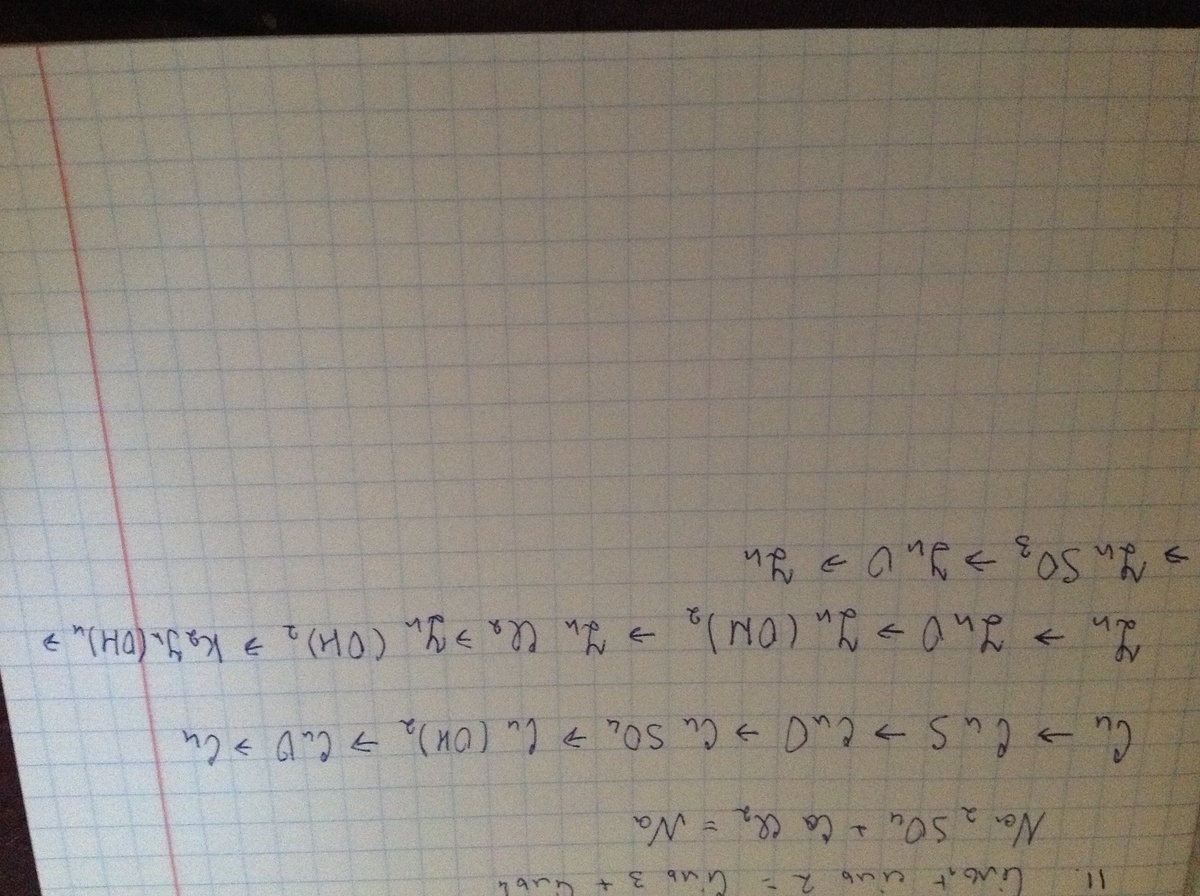 11. Сіль1 + сіль 2 = Сіль 3 + Сіль4
Na2SO4 + CaCl2 = Na
Cu → CuS → CuO → CuSO4 → Cu(OH)2 → CuO → Cu
Zn → ZnO → Zn(OH)2 → ZnCl2 → Zn(OH)2 → K2Zn(OH)4 →
→ ZnSO3 → ZnO → Zn